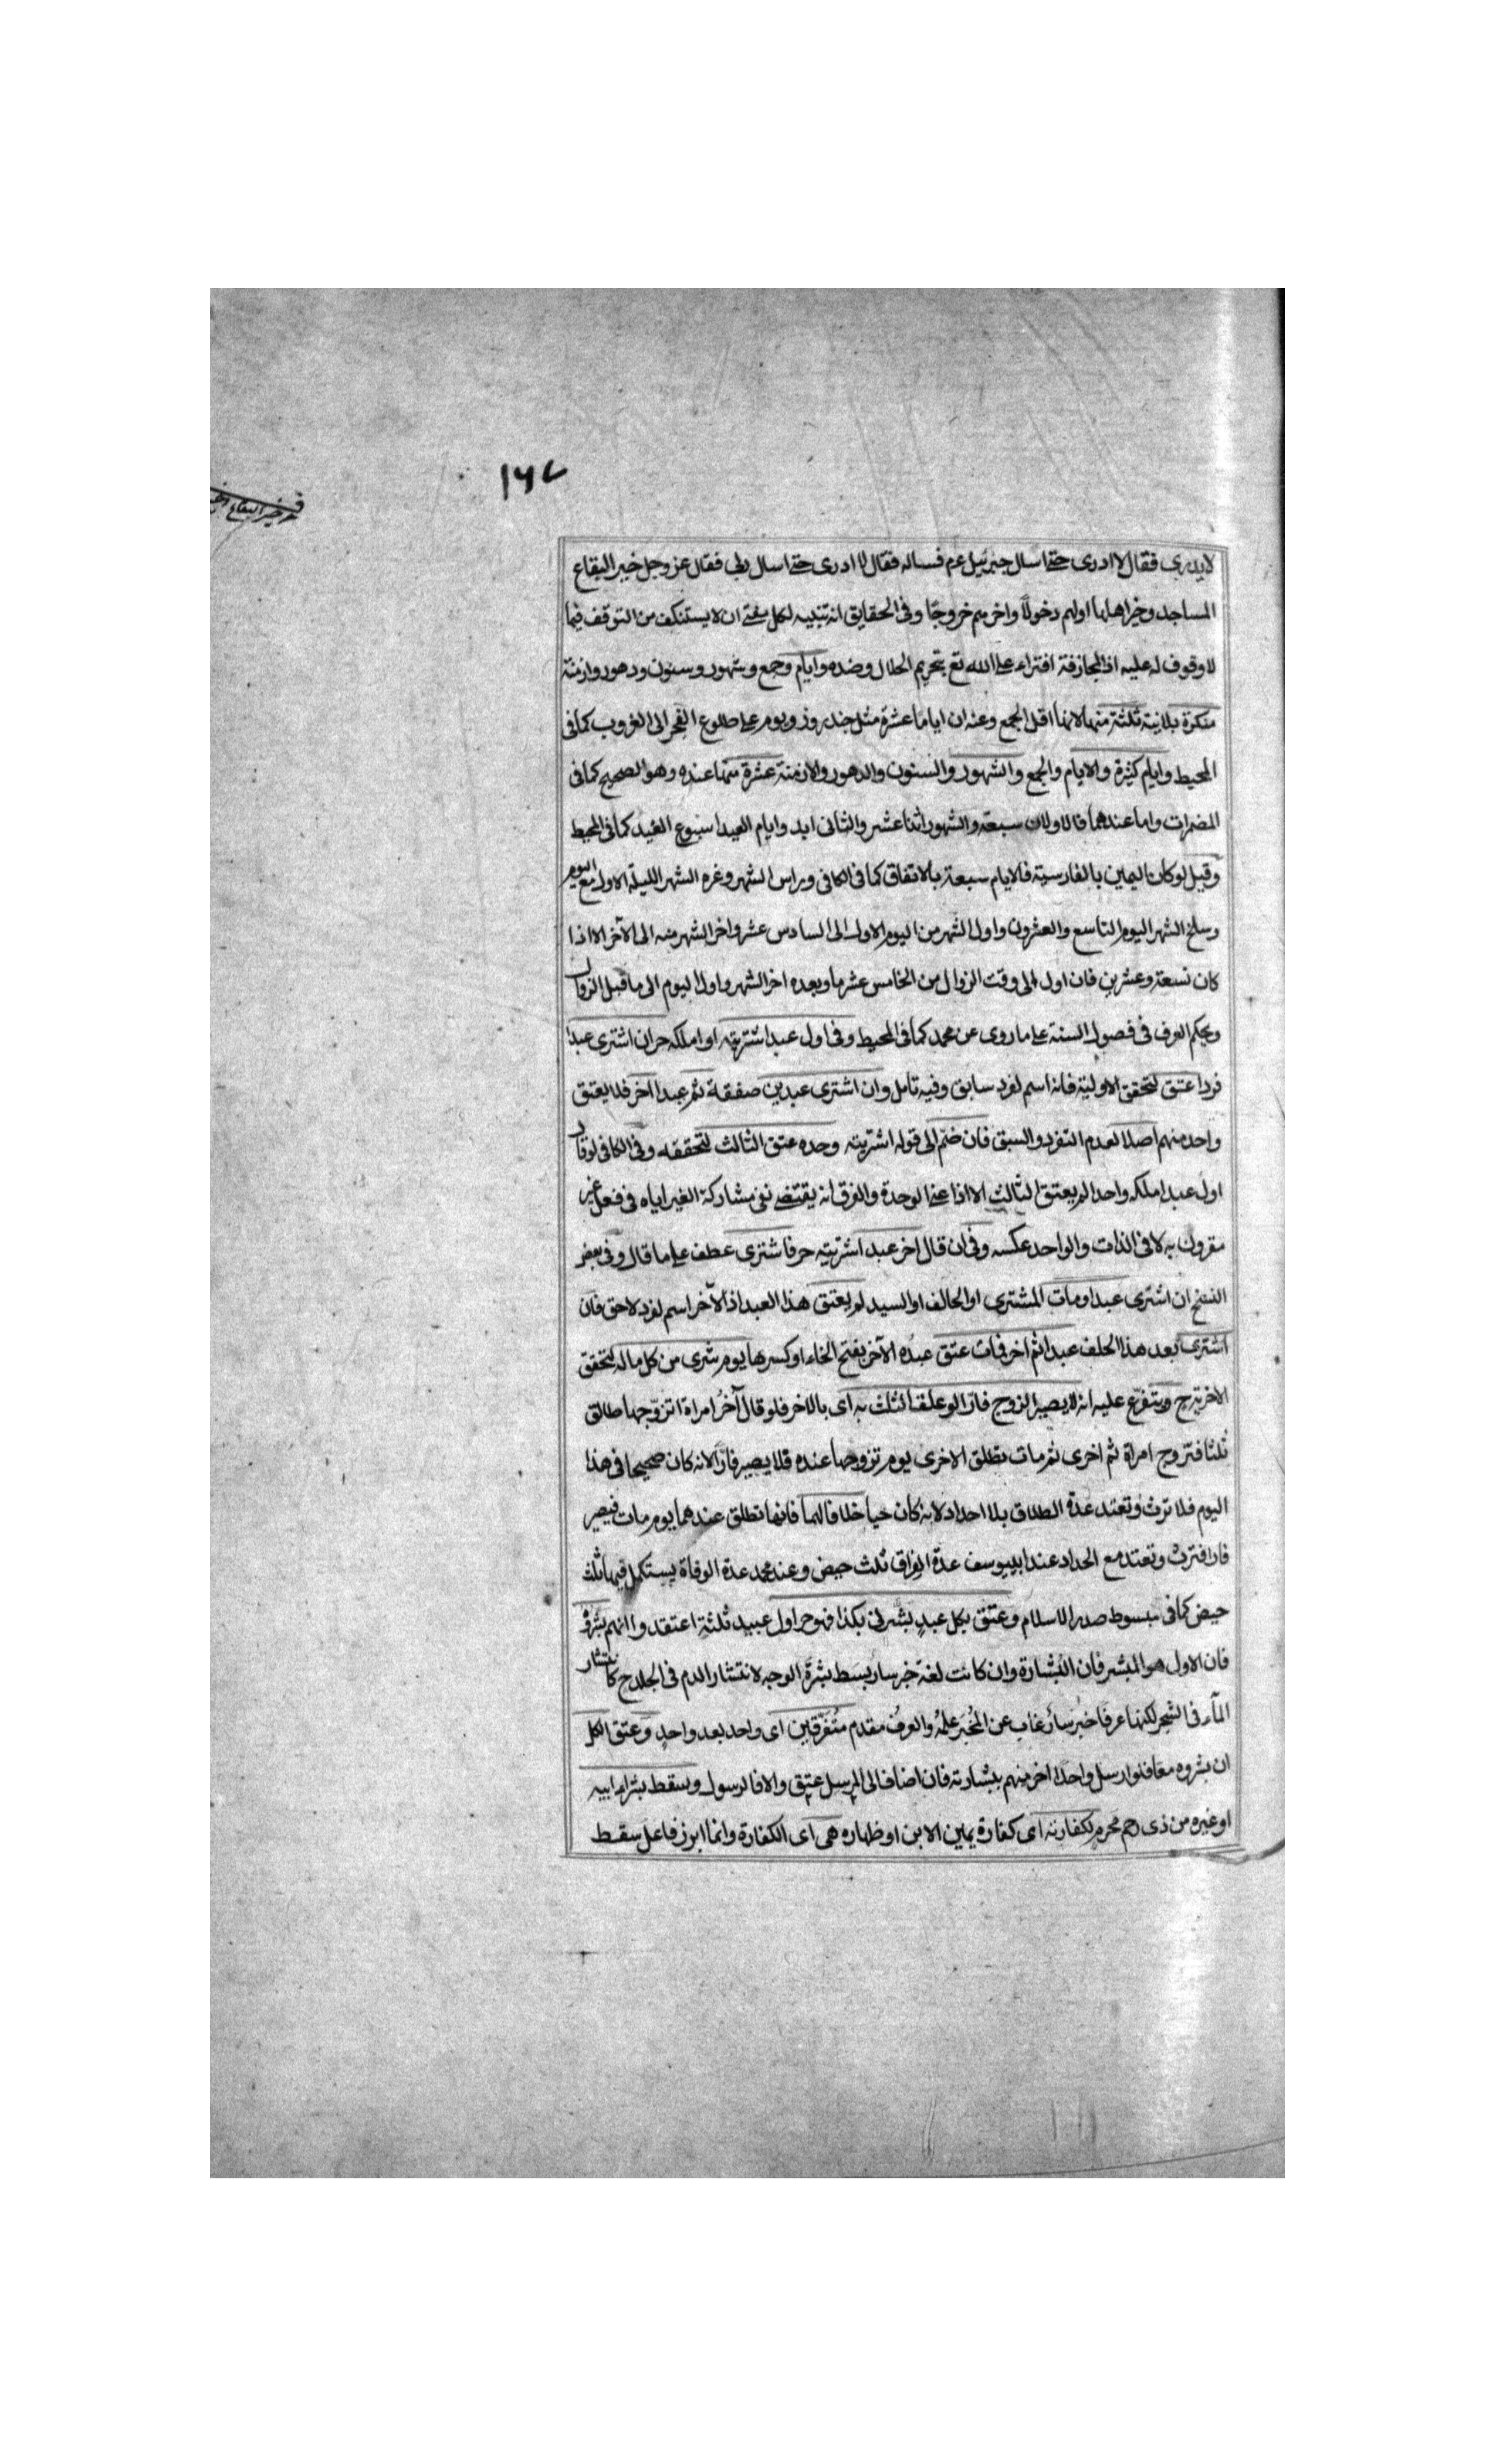 ١٦٧
خير البقاع
لا يدري فقال لا ادرى حتے اسال جبرئيل عم فساله فقال لا ادرى حتے اسال ربي فقال عز وجل خير البقاع
المساجد وخير اهلها اولهم دخولاً واخرهم خروجًا وفي الحقايق انه تنبيه لكل مفتے ان لا يستنكف من التوقف فيما
لا وقوف له عليه اذ المجازفة افتراء علے الله تع بتحريم الحلال وضده وايام وجمع وشهور وسنون ودهور وازمنة
منكرة بلانية ثلثة منها لانها اقل الجمع وعنه ان اياما عشرة مثل چند روز ويوم علے طلوع الفجر الى الغروب كما في
المحيط وايام كثيرة والايام والجمع والشهور والسنون والدهور والازمنة عشرة منها عنده وهو الصحيح كما في
المضمرات واما عندهما فالاولان سبعة والشهور اثنا عشر والثانى ابد وايام العيد اسبوع العيد كما في المحيط
وقيل لو كان اليمين بالفارسية فالايام سبعة بالاتفاق كما في الكافى وراس الشهر وغره الشهر الليلة الاولى مع اليوم
وسلخ الشهر اليوم التاسع والعشرون واول الشهر من اليوم الاول الى السادس عشر واخر الشهر منه الى الآخر الا اذا
كان تسعة وعشرين فان اوله الى وقت الزوال من الخامس عشر وما بعده اخر الشهر واول اليوم الى ما قبل الزوال
ويحكم العرف في فصول السنة علے ما روى عن محمد كما في المحيط وفى اول عبد اشتريته او املكه حر ان اشترى عبدا
فردا عتق لتحقق الاولية فانه اسم لفرد سابق وفيه تامل وان اشترى عبدين صفقة ثم عبدا آخر فلا يعتق
واحد منهم اصلا لعدم التفرد والسبق فان ضمّ الى قوله اشتريته وحده عتق الثالث لتحققه وفى الكافى لو قال
اول عبد املكه واحدا لم يعتق الثالث الا اذا عنے الوحدة والفرق انه يقتضے نفى مشاركة الغير اياه في فعل غير
مقرون به لا في الذات والواحد عكسه وفى ان قال اخر عبد اشتريته حر فاشترى عطف علے ما قال وفى بعض
النسخ ان اشترى عبدا ومات المشترى او الحالف او السيد لم يعتق هذا العبد اذ الآخر اسم لفرد لاحق فان
اشترى بعد هذا الحلف عبدا ثم اخر فمات عتق عبدُه الآخر بفتح الخاء او كسرها يوم شرى من كل ماله لتحقق
الاخرية ح ويتفرّع عليه انه لا يصير الزوج فارّا لو علق الثلث به اى بالاخر فلو قال آخرُ امراة اتزوّجها طالق
ثلثا فتزوج امراة ثم اخرى ثم مات تطلق الاخرى يوم تزوجها عنده فلا يصير فارًّا لانه كان صحيحا في هذا
اليوم فلا ترث وتعتد عدة الطلاق بلا احداد لانه كان حيا خلافا لهما فانها تطلق عندهما يوم مات فيصير
فارا فترث وتعتد مع الحداد عند ابيوسف عدة الفراق ثلث حيض وعند محمد عدة الوفاة يستكمل فيها ثلث
حيض كما في مبسوط صدر الاسلام وعتق بكل عبدٍ بشرنى بكذا فهو حر اول عبيد ثلثة اعتقد وا انهم بشروْ
فان الاول هو المبشر فان البُشارة وان كانت لغة خبر سارّ بسَط بشرَة الوجه لانتشار الدم في الجلد ح كانتشار
المآء في الشجر لكنها عرفا خبرُ سارُ غاب عن المُخبَر علمُهُ والعرفُ مقدم متفرّقين اى واحد بعد واحدٍ وعتق الكل
ان بشروه معا فلو ارسل واحدًا اخر منهم ببشارته فان اضاف الى المرسل عتق والا فالرسول وسقط بشراء ابيه
او غيره من ذى رحم محرمٍ لكفارته اى كفارة يمين الابن او ظهاره هى اى الكفارة وانما ابرز فاعل سقط